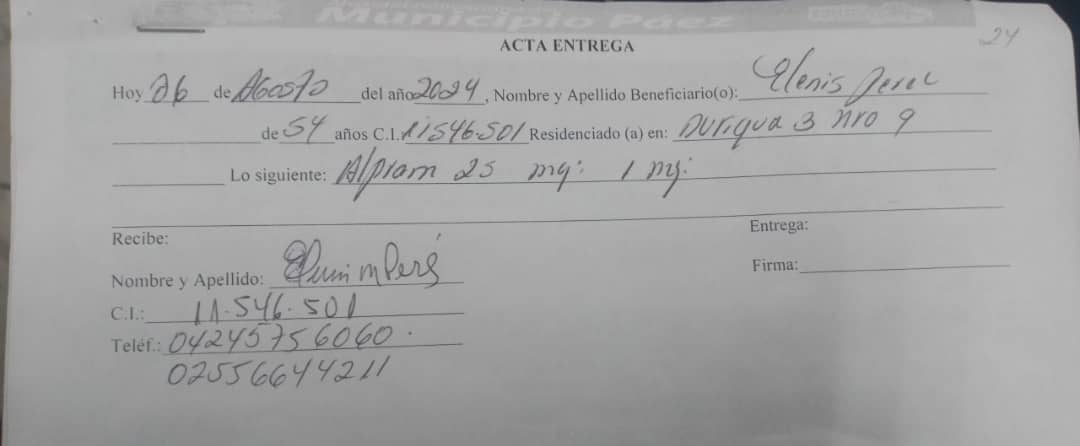 Municipio Páez
24
ACTA ENTREGA
Hoy 26 de Agosto del año 2024, Nombre y Apellido Beneficiario(o): Elenis Perez
de 54 años C.I. 11546.501 Residenciado (a) en: Duriqua 3 nro 9
Lo siguiente: Alpram 25 mg: 1 mg.
Recibe:
Entrega:
Nombre y Apellido:
Firma:
C.I.: 11.546.501
Teléf.: 04245756060.
02556644211